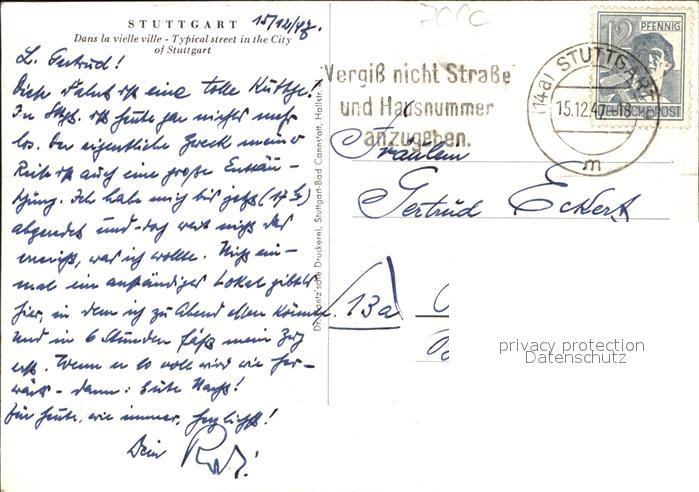 STUTTGART 15/12/47.
Dans la vielle ville - Typical street in the City
of Stuttgart
L. Gertrud!
Diese Fahrt ist eine tolle
In Stgt. ist heute gar nichts mehr
los. Der eigentliche Zweck meiner
Reise ist auch eine große Enttäu-
schung. Ich habe mich bis jetzt (17 h)
und doch weit nicht das
erreicht, was ich wollte. Nicht ein-
mal ein anständiges Lokal gibt es
hier, in dem ich zu Abend essen könnte.
Und in 6 Stunden fährt mein Zug
erst. Wenn er so voll wird wie her-
wärts - dann: Gute Nacht!
Für heute, wie immer, herzlichst!
Dein
Dr. Cantz'sche Druckerei, Stuttgart-Bad Cannstatt, Hallstr.
Vergiß nicht Straße
und Hausnummer
anzugeben.
(14a) STUTTGART
15.12.47.-18
m
12 PFENNIG
DEUTSCHE POST
Fräulein
Gertrud Eckert
13a
privacy protection
Datenschutz